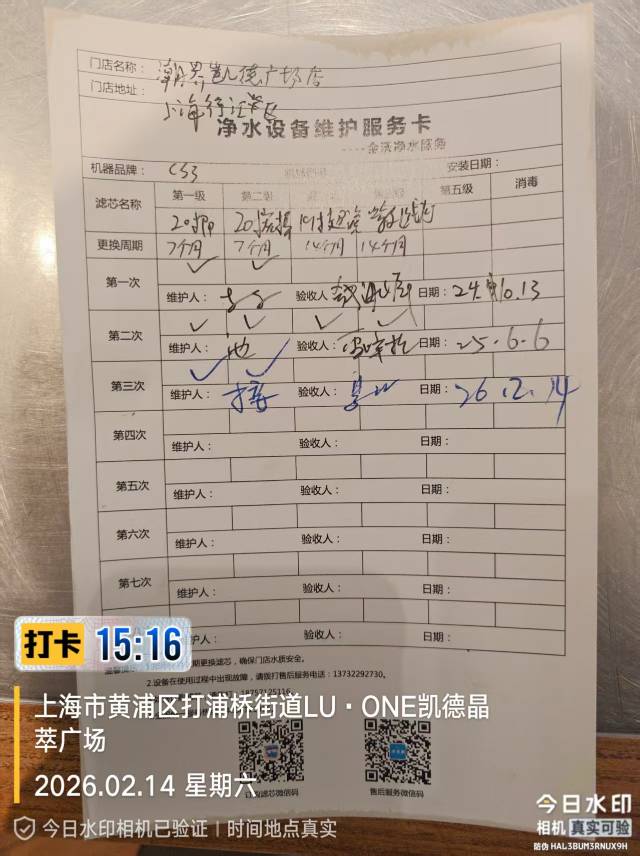 门店名称：潮界凯德广场店
门店地址：上海
净水设备维护服务卡
----金沃净水服务
机器品牌： 安装日期：
滤芯名称 第一级 第二级 第五级 消毒
20寸PP
更换周期 7个月 7个月 14个月 14个月
第一次 ✓ ✓
维护人： 验收人： 日期：24. 10.13
第二次 ✓ ✓ ✓ ✓
维护人：池 验收人： 日期：25-6-6
第三次 ✓ ✓
维护人： 验收人： 日期：26.2.14
第四次
维护人： 验收人： 日期：
第五次
维护人： 验收人： 日期：
第六次
维护人： 验收人： 日期：
第七次
维护人： 验收人： 日期：
维护人： 验收人： 日期：
期更换滤芯，确保门店水质安全。
2.设备在使用过程中出现故障，请拨打售后服务电话：13732292730。
18757125116
订购滤芯微信码 售后服务微信码
打卡 15:16
上海市黄浦区打浦桥街道LU·ONE凯德晶
萃广场
2026.02.14 星期六
今日水印相机已验证 | 时间地点真实
今日水印
相机 真实可验
防伪 HAL3BUM3RNUX9H